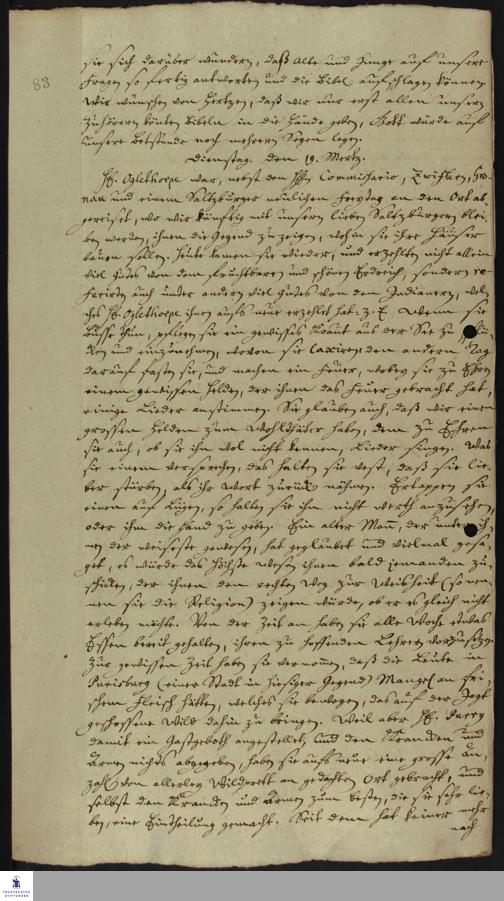 83
sie sich darüber wundern, daß Alte und Junge auf unsere
Fragen so fertig antworten und die Bibel aufschlagen können.
Wir wünschen von Hertzen, daß wir nur erst allen unsern
Zuhörern könten Bibeln in die Hände geben, Gott würde auf
unsere Betstunde noch mehrern Segen legen.
Dienstag. den 19. Mertz.
Hr. Oglethorpe war, nebst den Hn. Commissario, Zwiflern, Gro-
nau und einem Saltzburger neulichen Freytag an den Ort ab
gereiset, wo wir künftig mit unsern lieben Saltzburgern blei-
ben werden, ihnen die Gegend zu zeigen, wohin sie ihre Häuser
bauen sollen. Heute kamen sie wieder, und erzehlten nicht allein
viel gutes von dem fruchtbaren und schönen Erdreich, sondern re-
ferirten auch unter andern viel gutes von den Indianern, wel-
ches Hr. Oglethorpe ihnen aufs neue erzehlet hat: z. E. Wenn sie
Busse thun, pflegen sie ein gewisses Kraut aus der See zu
und einzunehmen, wovon sie laxiren: den andern Tag
darauf fasten sie, und machen ein Feuer, wobey sie zu Ehren
einem gewissen Helden, der ihnen das Feuer gebracht hat,
einige Lieder anstimmen. Sie glauben auch, daß wir einen
grossen Helden zum Wohlthäter haben, dem zu Ehren
sie auch, ob sie ihn wol nicht kennen, Lieder singen. Was
sie einem versprechen, das halten sie vest, daß sie lie-
ber stürben, als ihr Wort zurück nähmen. Ertappen sie
einen auf Lügen, so halten sie ihn nicht werth anzusehen,
oder ihm die Hand zu geben. Ein alter Man, der unter ih-
nen der weiseste gewesen, hat geglaubet und vielmal gesa-
get, es würde das höchste Wesen ihnen bald jemanden zu-
schicken, der ihnen den rechten Weg zur Weisheit (so nen-
nen sie die Religion) zeigen würde, ob er es gleich nicht
erleben möchte. Von der Zeit an haben sie alle Woche etwas
Essen bereit gehalten, ihren zu hoffenden Lehrer vorzusetzen.
Zur gewissen Zeit haben sie vernomen, daß die Leute in
Purisburg (einer Stadt in hiesiger Gegend) Mangel an fri-
schem Fleisch hätten, welches sie bewogen, das auf der Jagt
geschossene Wild dahin zu bringen. Weil aber Hr. Purry
damit ein Gastgeboth angestellet, und den Krancken und
Armen nichts abgegeben, haben sie aufs neue eine grosse An-
zahl von allerley Wildprett an gedachten Ort gebracht, und
selbst den Krancken und Armen zum besten, die sie sehr lie-
ben, eine Eintheilung gemacht. Seit dem hat keiner mehr
nach
FRANCKESCHE
STIFTUNGEN